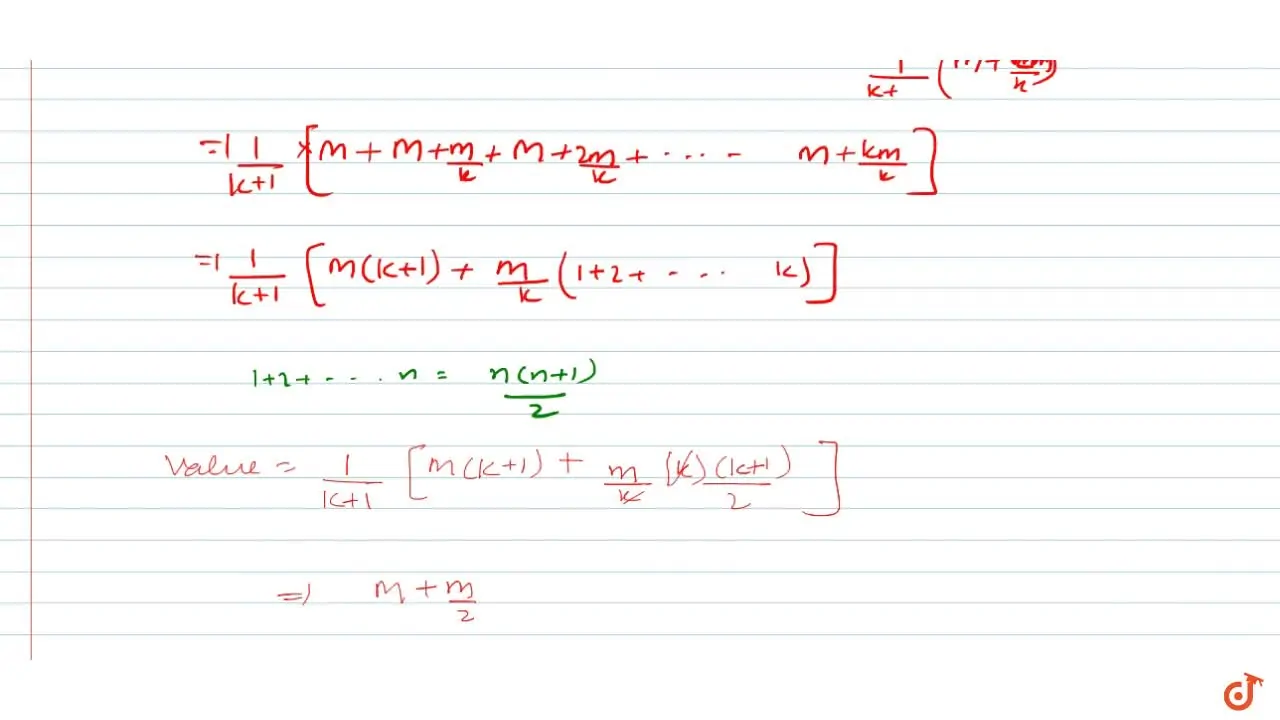 1/(k+ (m+ /k)
=1 1/(k+1) × [m + m + m/k + m + 2m/k + ..... - m + km/k]
=1 1/(k+1) [m(k+1) + m/k (1+2+ - ... k)]
1+2+ - - . . n = n(n+1)/2
Value = 1/(k+1) [m(k+1) + m/k (k)(k+1)/2]
=) m + m/2